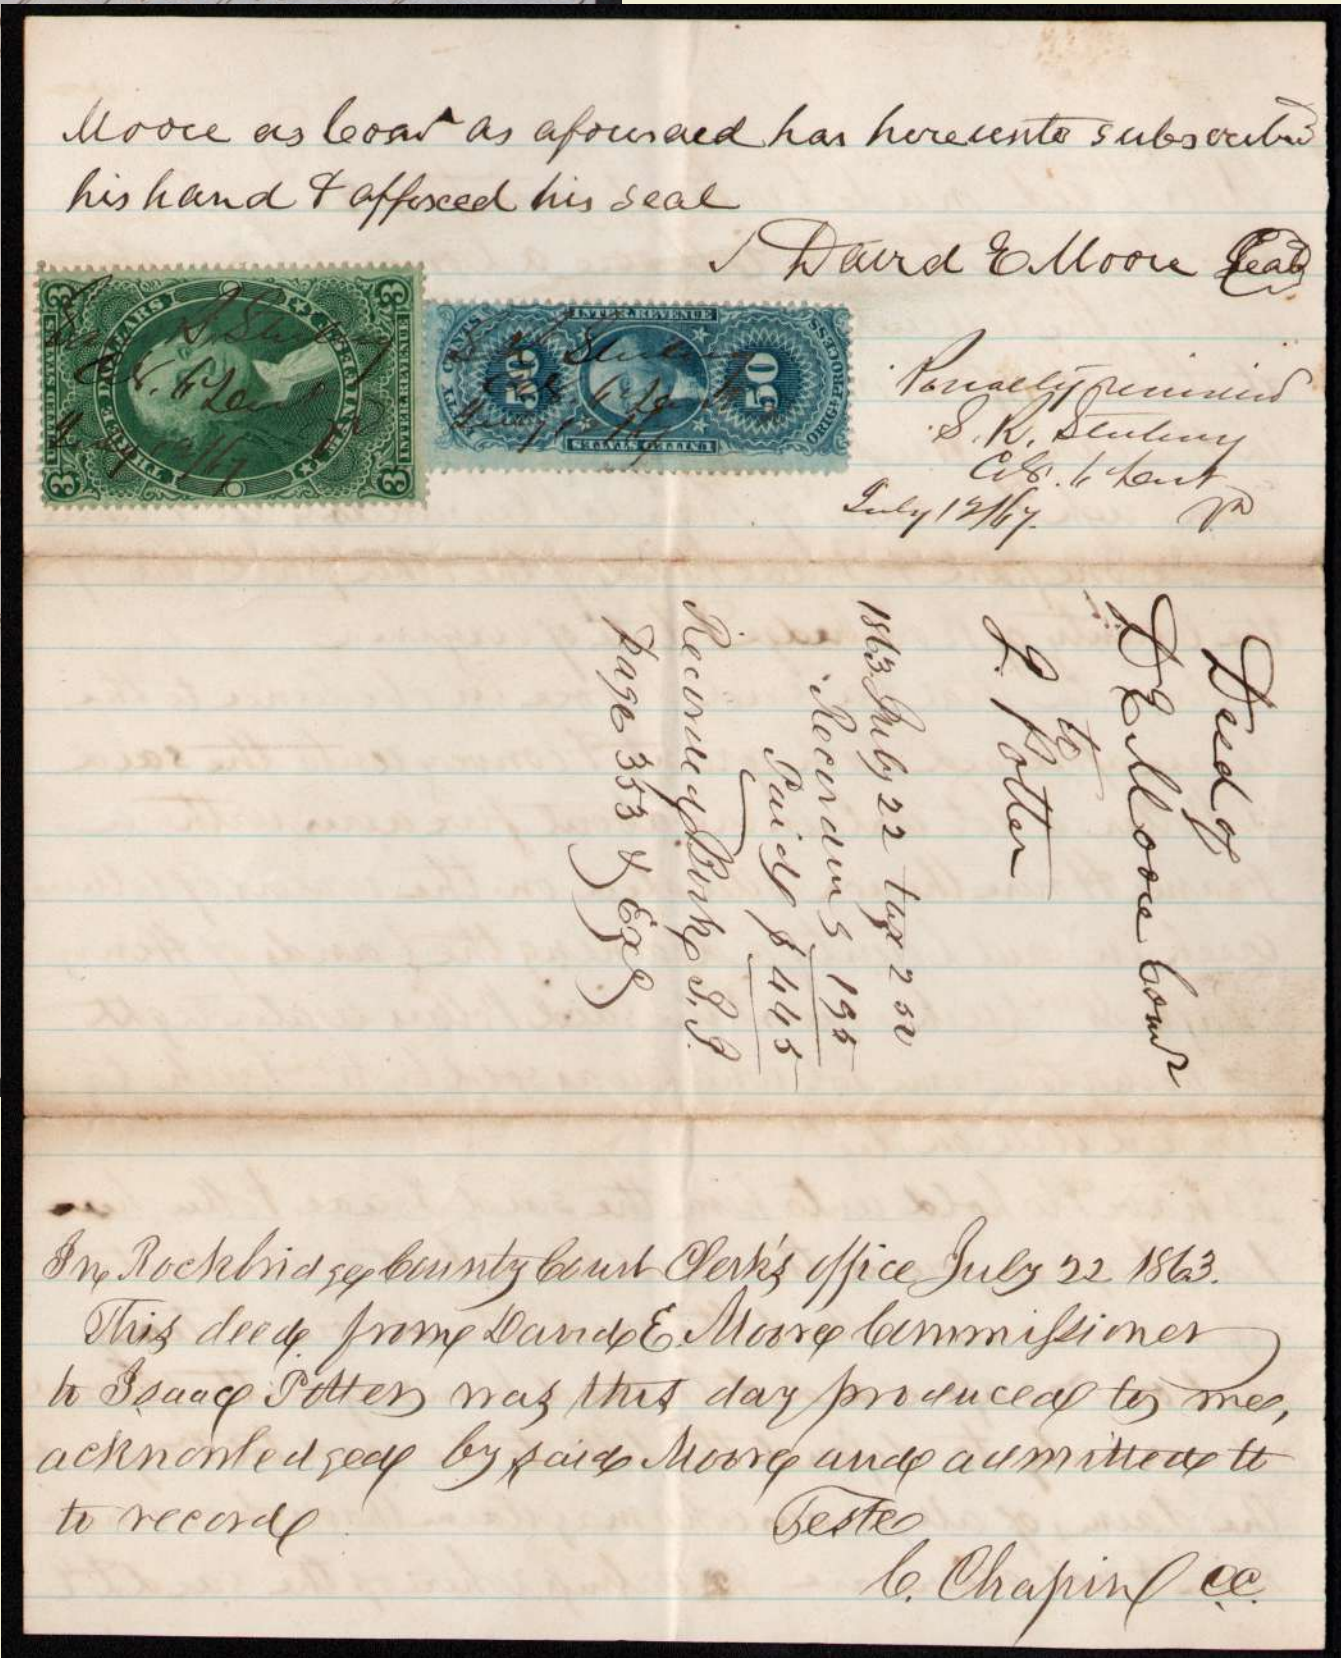 Moore as Comr as aforesaid has hereunto subscribed
his hand & affixed his seal
David E Moore Seal
UNITED STATES
THREE DOLLARS
MANIFEST
INTER. REVENUE
3 3 3 3
July 12/67
INTER. REVENUE
FIFTY CENTS
50 50
ORIG. PROCESS
UNITED STATES
July 12/67
Penalty remitted
S. K.
Col. 6 Dist
July 12/67. Va
Deed of
D E Moore Comr
to
I. Potter
1863 July 22 tax 2 50
Recording 195
Paid $ 445
Recorded Book I.I.
Page 353 & Exd
In Rockbridge County Court Clerk's office July 22 1863.
This deed from David E. Moore Commissioner
to Isaac Potter was this day produced to me,
acknowledged by said Moore and admitted to
to record
Teste
C. Chapin CC.